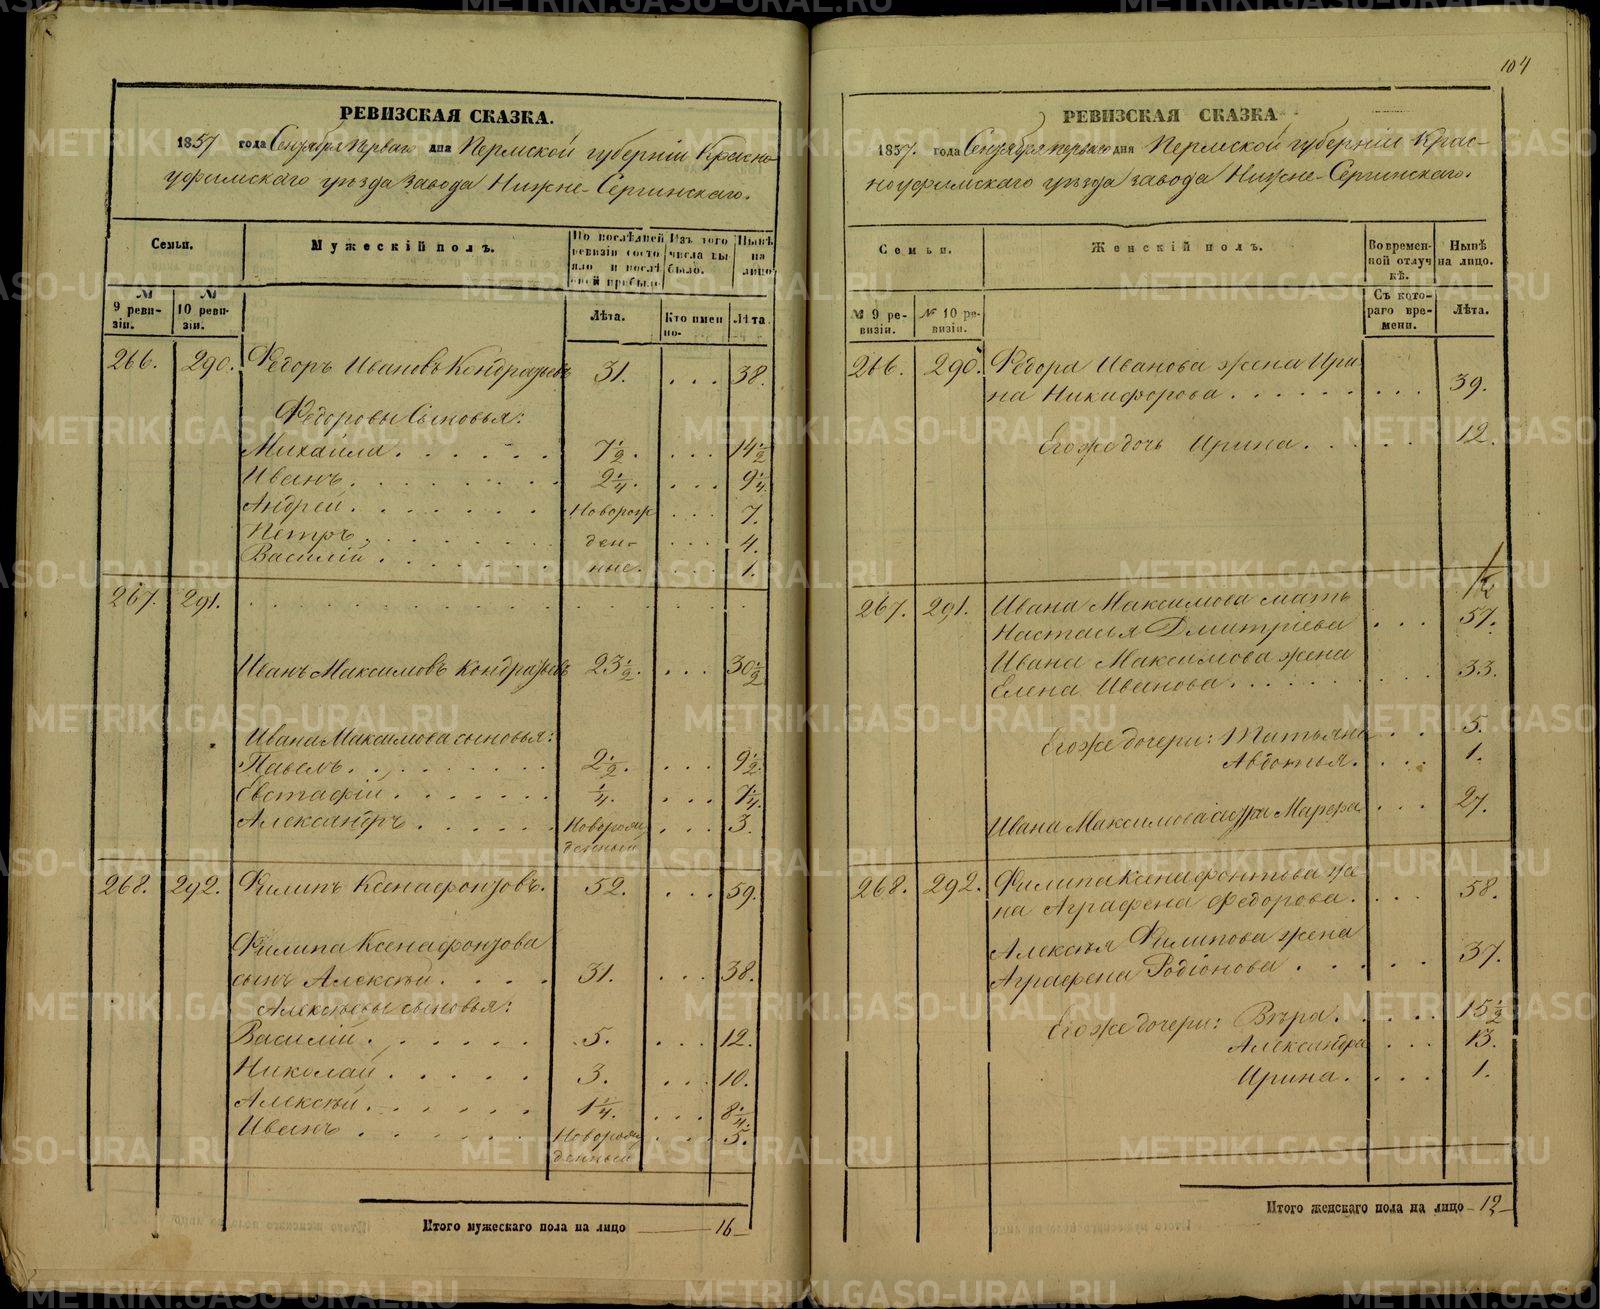 РЕВИЗСКАЯ СКАЗКА.
1857 года Сентября перваго дня Пермской губерніи Красно
уфимскаго уѣзда завода Нижне-Сергинскаго.
Семьи.
Мужескій полъ.
По послѣдней ревизіи состояло и послѣ оной прибыло
Изъ того числа выбыло.
Нынѣ на лицо
№ 9 ревизіи.
№ 10 ревизіи.
Лѣта.
Кто именно.
Лѣта
266. 290. Федоръ Ивановъ 31. . . . 38.
Федоровы Сыновья:
Михайла. 7 1/2. . . . 14 1/2
Иванъ. 2 1/4. . . . 9 1/4
Андрей. Новорож . . . 7.
Петръ. ден- . . . 4.
Василій. ные. . . . 1.
267. 291.
Иванъ Максимовъ 23 1/2. . . . 30 1/2
Ивана Максимова сыновья:
Павелъ. 2 1/2. . . . 9 1/2.
Евстафій. 1/4. . . . 7 1/4.
Александръ. Новорож . . . 3.
денный
268. 292. Филипъ Ксенафонтовъ. 52. . . . 59.
Филипа Ксенафонтова
сынъ Алексѣй. 31. . . . 38.
Алексѣевы сыновья:
Василій. 5. . . . 12.
Николай. 3. . . . 10.
Алексѣй. 1 1/4. . . . 8 1/4.
Иванъ. Новорож . . . 5.
денный
Итого мужескаго пола на лицо 16
104
РЕВИЗСКАЯ СКАЗКА
1857. года Сентября перваго дня Пермской губерніи Крас-
ноуфимскаго уѣзда завода Нижне-Сергинскаго.
Семьи.
Женскій полъ.
Во временной отлучкѣ.
Нынѣ на лицо.
№ 9 ревизіи.
№ 10 ревизіи.
Съ котораго времени.
Лѣта.
266. 290. Федора Иванова жена Ири
на Никифорова. 39.
Его же дочь Ирина. 12.
267. 291. Ивана Максимова мать
Настасья Дмитріева . . . 57.
Ивана Максимова жена
Елена Иванова. 33.
Его же дочери: Татьяна . . . 5.
Авдотья. 1.
Ивана Максимова сестра Марфа . . . 27.
268. 292. Филипа Ксенафонтова же
на Аграфена Федорова. 58.
Алексѣя Филипова жена
Аграфена Родіонова . . . 37.
Его же дочери: Вѣра. 15 1/2
Александра . . . 13.
Ирина. 1.
Итого женскаго пола на лицо 12
METRIKI.GASO-URAL.RU